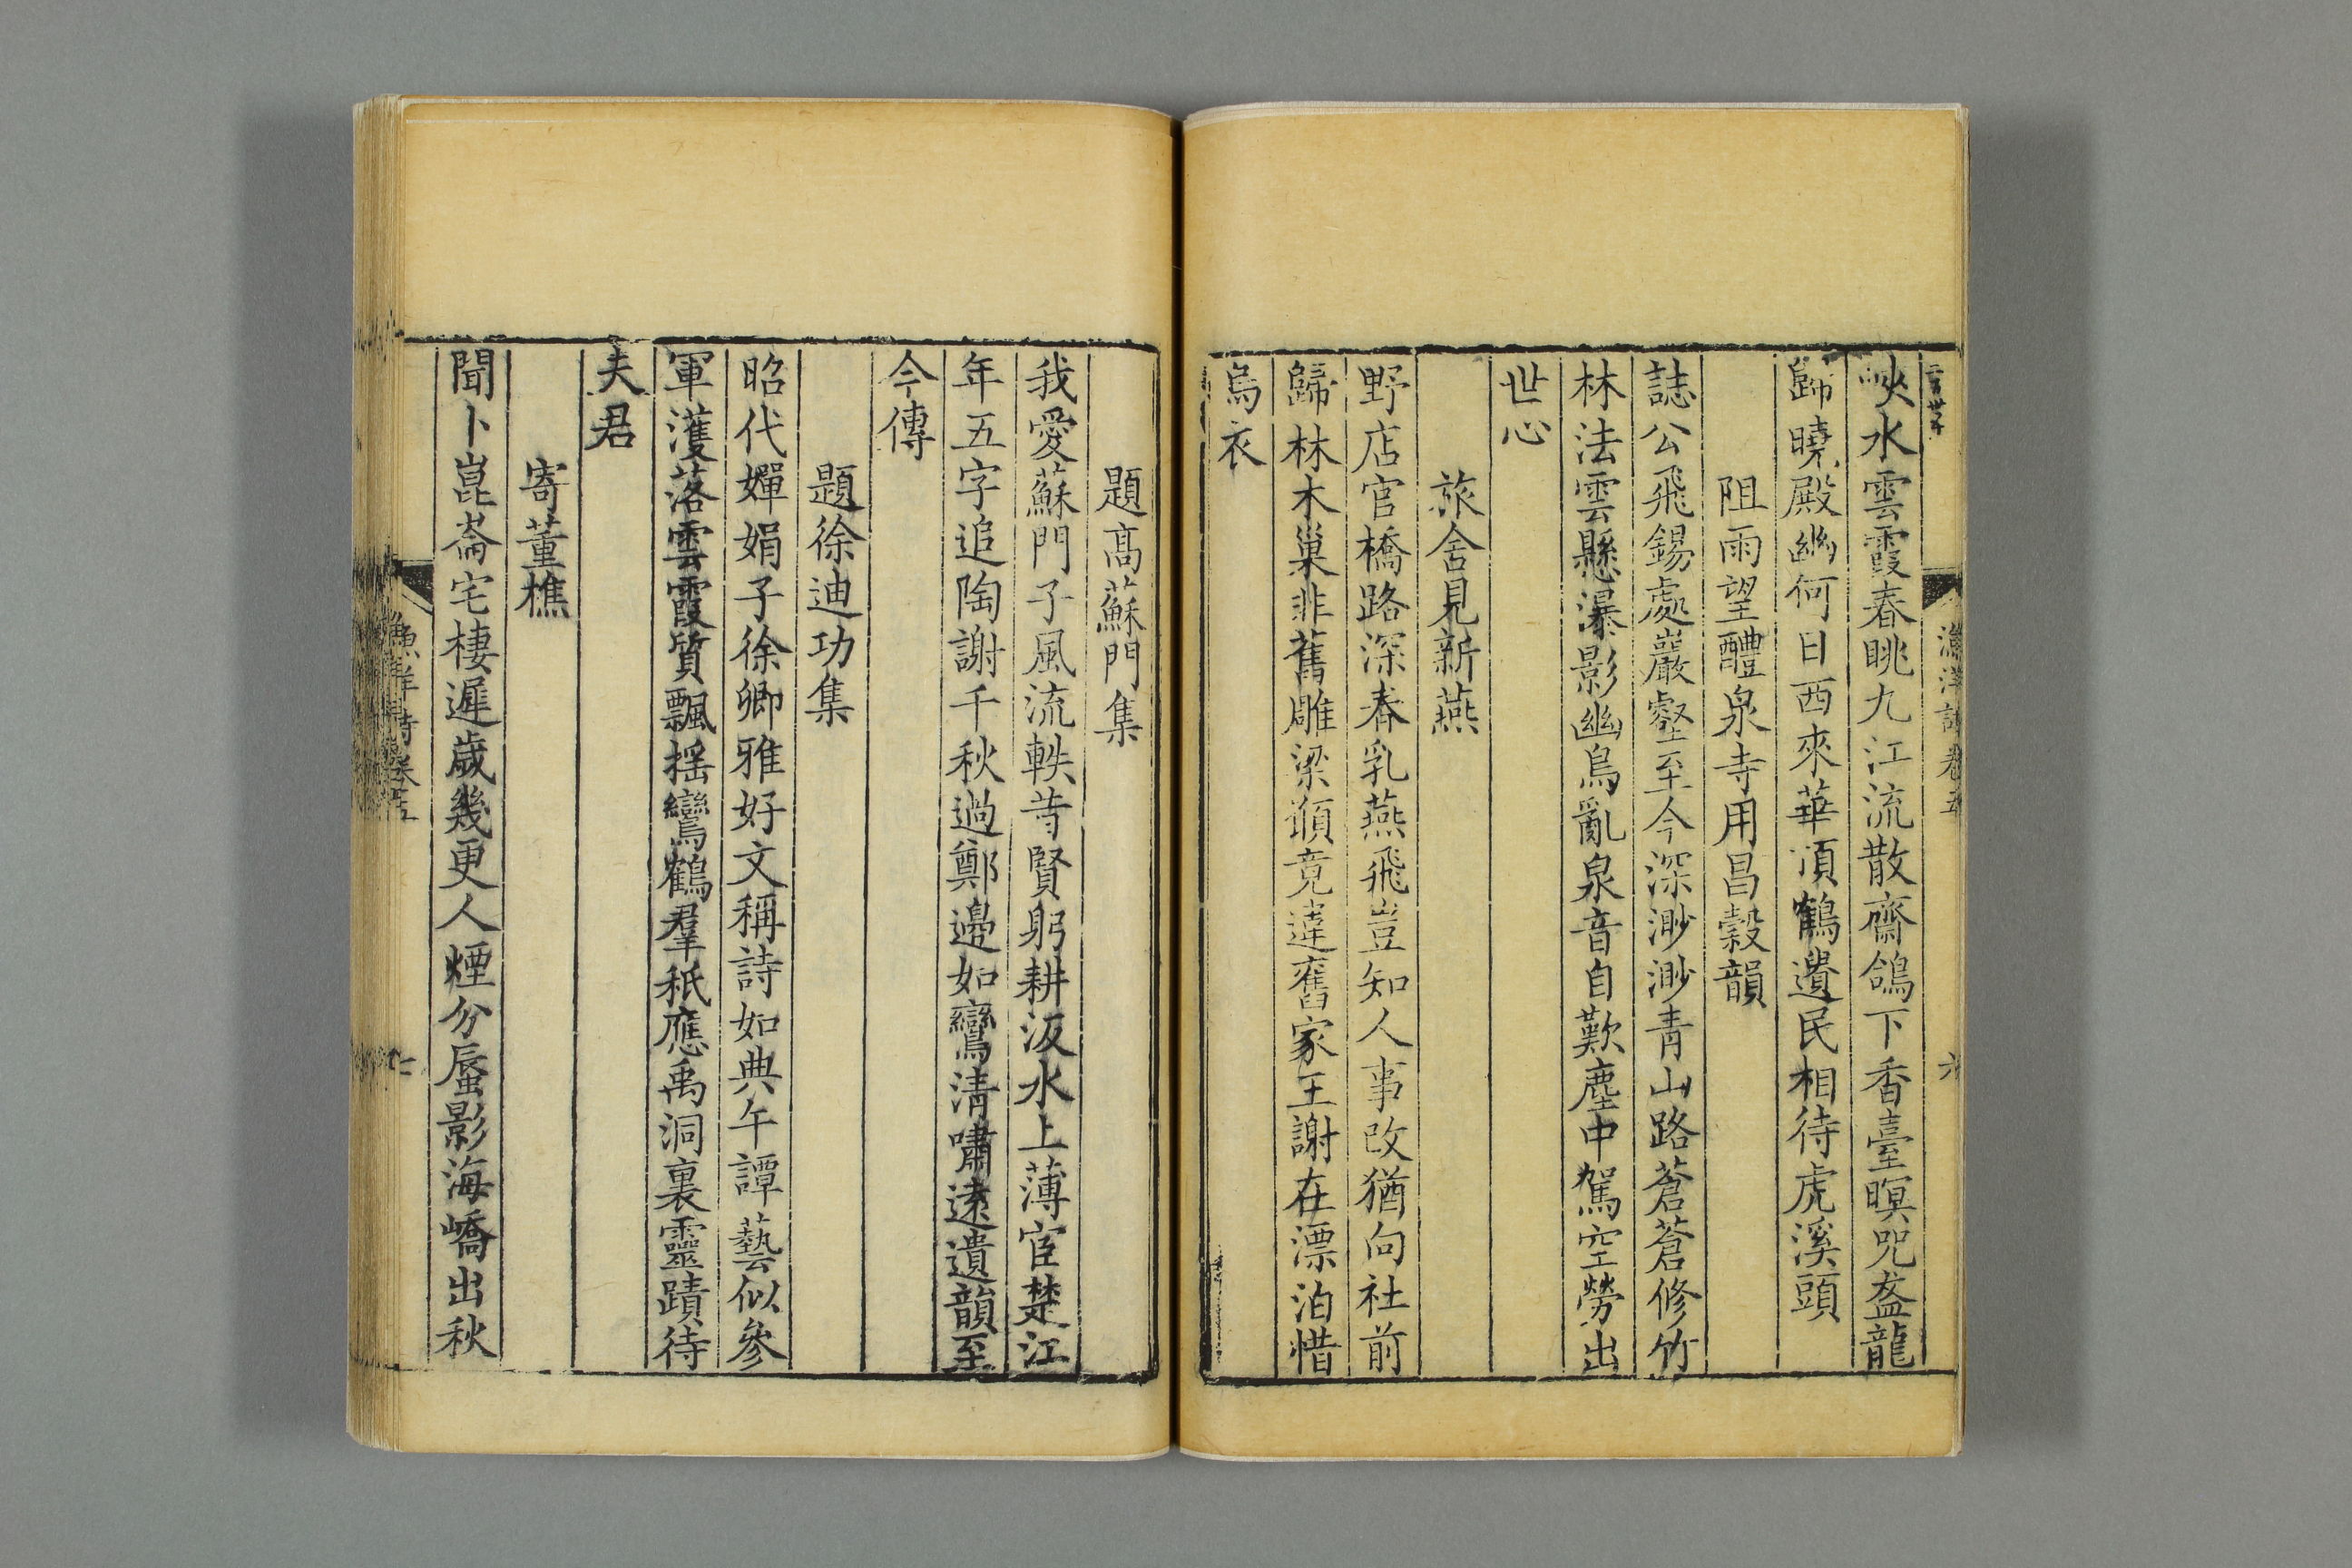 峽水雲霞春眺九江流散齋鴿下香臺暝咒盋龍
歸曉殿幽何日西來華頂鶴遺民相待虎溪頭
阻雨望醴泉寺用昌穀韻
誌公飛錫處巖壑至今深渺渺青山路蒼蒼修竹
林法雲懸瀑影幽鳥亂泉音自歎塵中駕空勞出
世心
旅舍見新燕
野店官橋路深春乳燕飛豈知人事改猶向社前
歸林木巢非舊雕梁願竟違舊家王謝在漂泊惜
烏衣
漁洋詩卷五
六
題高蘇門集
我愛蘇門子風流軼昔賢躬耕汳水上薄宦楚江
年五字追陶謝千秋過鄭邊如鸞清嘯遠遺韻至
今傳
題徐迪功集
昭代嬋娟子徐卿雅好文稱詩如典午譚藝似參
軍濩落雲霞質飄搖鸞鶴羣秖應禹洞裏靈蹟待
夫君
寄董樵
聞卜崑崙宅棲遲歲幾更人煙分蜃影海嶠出秋
漁洋詩卷五
七